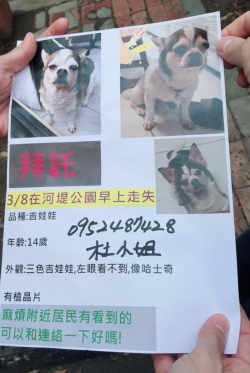 拜託
3/8在河堤公園早上走失
品種:吉娃娃
0952487428
年齡:14歲
杜小姐
外觀:三色吉娃娃,左眼看不到,像哈士奇
有植晶片
麻煩附近居民有看到的
可以和連絡一下好嗎!